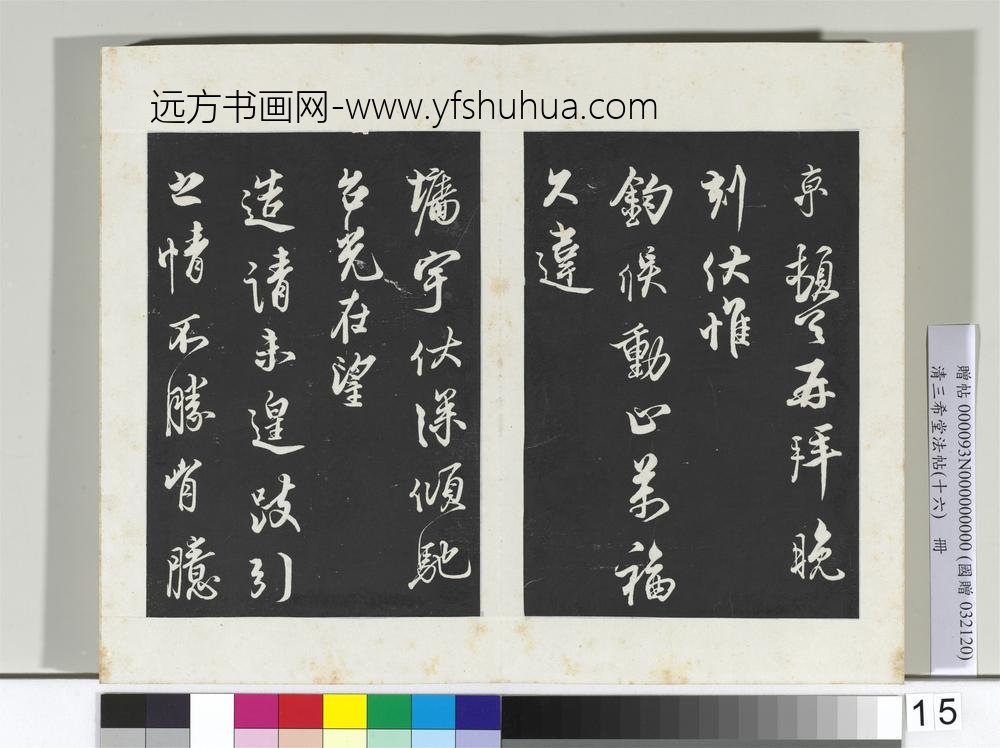 远方书画网-www.yfshuhua.com
京頓首再拜晚
刻伏惟
鈞候動止萬福
久違
墉宇伏深傾馳
台光在望
造請未遑跂引
之情不勝胷臆
贈帖 000093N000000000 (國贈 032120)
清三希堂法帖(十六) 冊
15